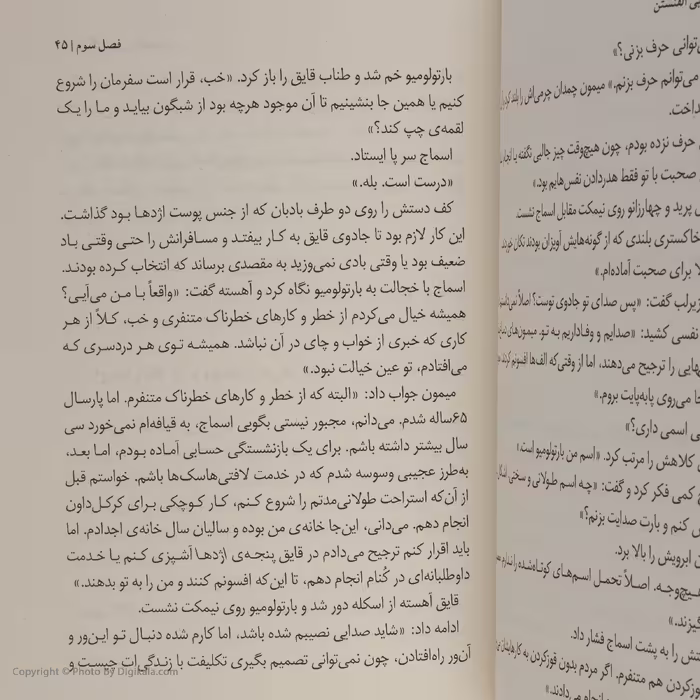 فصل سوم | ۴۵
بارتولومیو خم شد و طناب قایق را باز کرد. «خب، قرار است سفرمان را شروع
کنیم یا همین جا بنشینیم تا آن موجود هرچه بود از شبگون بیاید و ما را یک
لقمه‌ی چپ کند؟»
اسماج سر پا ایستاد.
«درست است. بله.»
کف دستش را روی دو طرف بادبان که از جنس پوست اژدها بود گذاشت.
این کار لازم بود تا جادوی قایق به کار بیفتد و مسافرانش را حتی وقتی باد
ضعیف بود یا وقتی بادی نمی‌وزید به مقصدی برساند که انتخاب کرده بودند.
اسماج با خجالت به بارتولومیو نگاه کرد و آهسته گفت: «واقعاً با من می‌آیی؟
همیشه خیال می‌کردم از خطر و کارهای خطرناک متنفری و خب، کلاً از هر
کاری که خبری از خواب و چای در آن نباشد. همیشه توی هر دردسری که
می‌افتادم، تو عین خیالت نبود.»
میمون جواب داد: «البته که از خطر و کارهای خطرناک متنفرم. اما پارسال
۶۵ساله شدم. می‌دانم، مجبور نیستی بگویی اسماج، به قیافه‌ام نمی‌خورد سی
سال بیشتر داشته باشم. برای یک بازنشستگی حسابی آماده بودم، اما بعد،
به‌طرز عجیبی وسوسه شدم که در خدمت لافتی‌هاسک‌ها باشم. خواستم قبل
از آن‌که استراحت طولانی‌مدتم را شروع کنم، کار کوچکی برای کرکل‌داون
انجام دهم. می‌دانی، این‌جا خانه‌ی من بوده و سالیان سال خانه‌ی اجدادم. اما
باید اقرار کنم ترجیح می‌دادم در قایق پنجه‌ی اژدها آشپزی کنم یا خدمت
داوطلبانه‌ای در کُنام انجام دهم، تا این‌که افسونم کنند و من را به تو بدهند.»
قایق آهسته از اسکله دور شد و بارتولومیو روی نیمکت نشست.
ادامه داد: «شاید صدایی نصیبم شده باشد، اما کارم شده دنبال تو این‌ور و
آن‌ور راه‌افتادن، چون نمی‌توانی تصمیم بگیری تکلیفت با زندگی‌ات چیست و
توانی حرف بزنی؟»
می‌توانم حرف بزنم.» میمون چمدان چرمی‌اش را بلند کرد
داخت.
حرف نزده بودم، چون هیچ‌وقت چیز جالبی نگفته
صحبت با تو فقط هدردادن نفس‌هایم بود.»
پرید و چهارزانو روی نیمکت مقابل اسماج نشست.
خاکستری بلندی که از گونه‌هایش آویزان بودند تکان خوردند
برای صحبت آماده‌ام.»
زیرلب گفت: «پس صدای تو جادوی توست؟ اصلاً
نفسی کشید: «صدایم و وفاداریم به تو. میمون‌های
را ترجیح می‌دهند، اما از وقتی که الف‌ها افسونم کردند
می‌روی پابه‌پایت بروم.»
اسمی داری؟»
کلاهش را مرتب کرد. «اسم من بارتولومیو است.»
کمی فکر کرد و گفت: «چه اسم طولانی و سختی
کنم و بارت صدایت بزنم؟»
ابرویش را بالا برد.
اصلاً تحمل اسم‌های کوتاه‌شده را ندارم
را به پشت اسماج فشار داد.
هم متنفرم. اگر مردم بدون قوزکردن به کارهایشان
می‌دادند.»
Copyright © Photo By Digikala.com